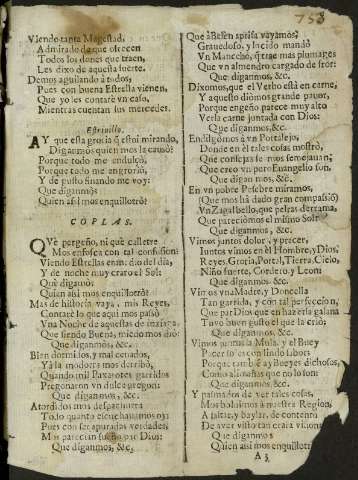 753
Viendo tanta Magestad,
Admirado de que ofrecen
Todos los dones que traen,
Les dixo de aquesta suerte.
Demos aguilando à todos,
Pues con buena Estrella vienen,
Que yo les contarè vn caso,
Mientras cuentan sus mercedes.
Estrivillo.
AY que esta groria q̃ estoi mirando,
Digasmos quien mos la causò?
Porque todo me endulçò,
Porque todo me engroriò,
Y de pusto finando me voy:
Que digasmos:
Quien asi mos enquillotrò?
COPLAS.
QVè pergeño, ni què calletre
Mos enfosca con tal confusion:
Viendo Estrellas en medio del dia,
Y de noche muy craro el Sol:
Què digamò:
Quien aisi mos enquillotrò?
Mas de historia vaya, mis Reyes,
Contarè lo que aqui mos passò
Vna Noche de aquestas de marras,
Que siendo Buena, miedo mos diò:
Que diganmos, &c.
Bian dormidos, y mal cenados,
Yà la modorra mas derribò,
Quando mil Paxarotes garridos
Pregonaron vn dulce pregon:
Que digasmos, &c.
Atordidos mos despachurra
Todo quanto escuchavamos oy:
Pues con ser apuradas verdades,
Mos parecian sueño par Dios:
Que digasmos, &c.
Que à Belen aprisa vayamos,
Gravedoso, y lucido mandò
Vn Mancebo, q̃ trae mas plumages
Que vn almendro cargado de fror:
Que digasmos, &c.
Dixomos, que el Verbo està en carne,
Y aquello diòmos grande pavor,
Porque engeño parece muy alto
Verla carne juntada con Dios:
Que diganmos, &c.
Endilgòmos à vn Portalejo,
Donde en èl tales cosas mostrò,
Que consejas se mos semejavan;
Que creo vn puro Euangelio son.
Que digan mos, &c.
En vn pobre Pesebre miramos,
(Que mos hà dado gran compassiò)
Vn Zagalbello, que perlas derrama,
Que pareciòmos el mismo Sol:
Que diganmos, &c.
Vimos juntos dolor, y prazer,
Juntos vimos en èl Hombre, y Dios,
Reyes, Groria, Portal, Tierra, Cielo,
Niño fuerte, Cordero, y Leon:
Que diganmos, &c.
Vimos vna Madre, y Doncella
Tan garrida, y con tal perfeccion,
Que par Dios que en hazerla galana
Tuvo buen gusto el que la criò:
Que diganmos, &c.
Vimos juntos la Mula, y el Buey
Y pasmados de ver tales cosas,
Mos bolvimos à nuestra Region,
A saltar, y baylar, de contento
De aver visto tan craras visiones
Que diganmos
Quien aisi mos enquillotrò
A 3